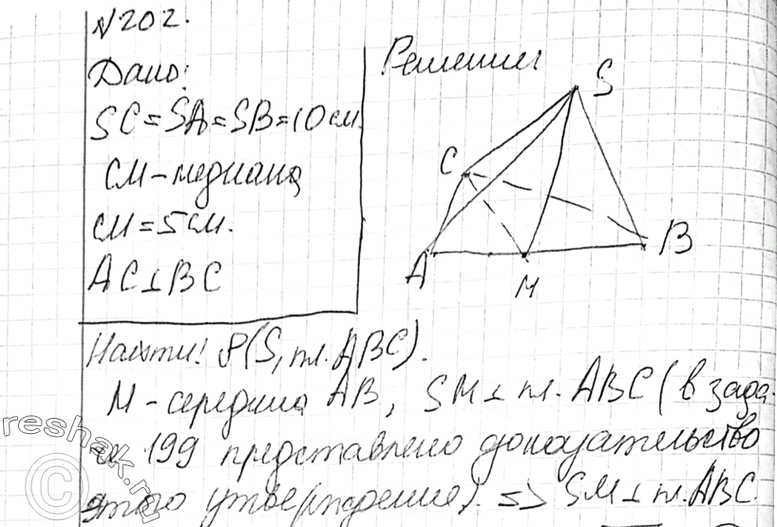 №202.
Дано:
SC=SA=SB=10см.
СМ-медиана
СМ=5см.
AC⊥BC
Решение:
S
C
A
M
B
Найти: ρ(S, пл. ABC).
М-середина АВ, SM⊥пл. ABC (в зада-
че 199 представлено доказательство
этого утверждения) => SM⊥пл.ABC.
reshak.ru
©